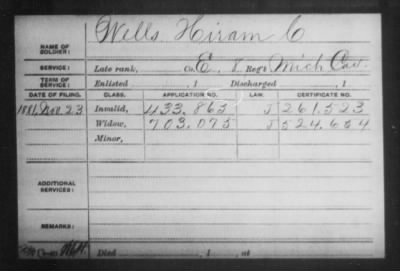 Wells Hiram C
NAME OF SOLDIER:
SERVICE: Late rank, Co. E, 8 Reg't Mich Cav.
TERM OF SERVICE: Enlisted , 1 Discharged , 1
DATE OF FILING. CLASS. APPLICATION NO. LAW. CERTIFICATE NO.
1881, Nov. 23 Invalid, 433.865 J 261.523
Widow, 703.075 J 524.654
Minor,
ADDITIONAL SERVICES:
REMARKS:
Died , 1 , at